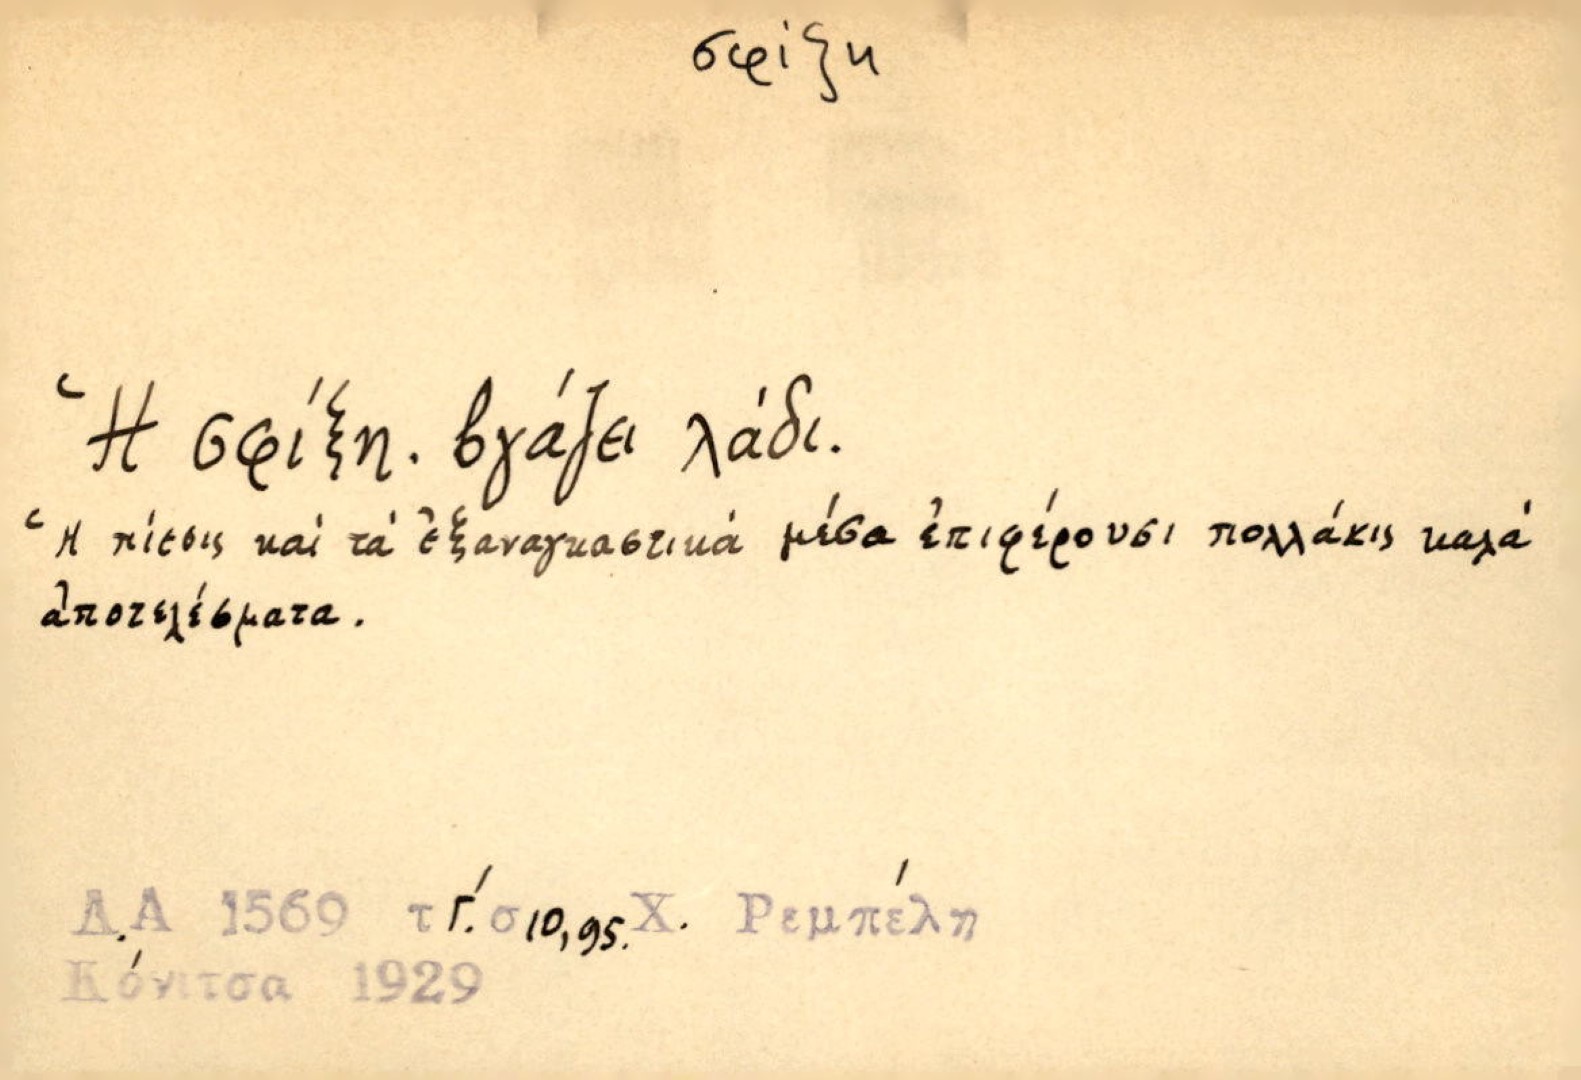 σφίξη
Ἡ σφίξη. βγάζει λάδι.
Ἡ πίεσις καί τά ἐξαναγκαστικά μέσα ἐπιφέρουσι πολλάκις καλά
ἀποτελέσματα.
Δ.Α 1569 τ Γ΄. σ 10,95. Χ. Ρεμπέλη
Κόνιτσα 1929